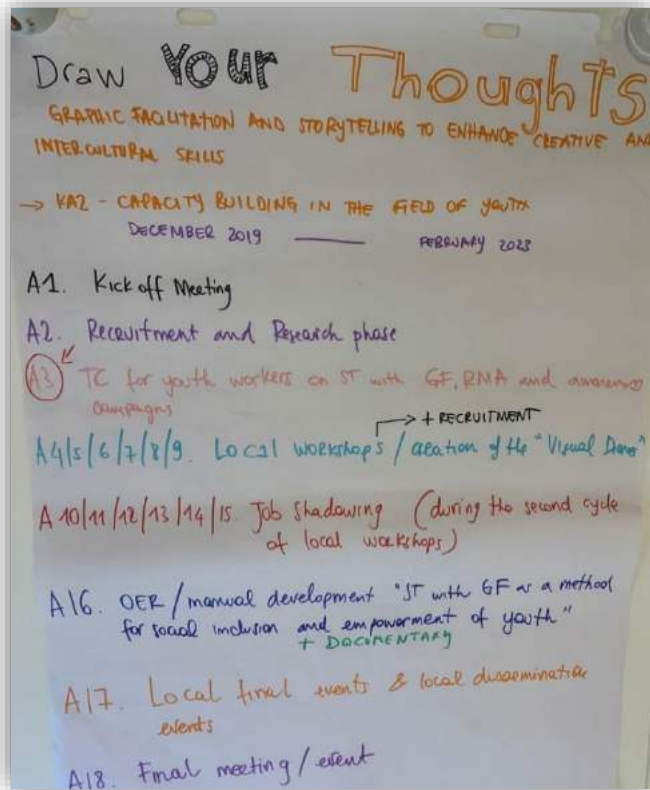 Draw Your Thoughts
GRAPHIC FACILITATION AND STORYTELLING TO ENHANCE CREATIVE AND
INTERCULTURAL SKILLS
→ KA2 - CAPACITY BUILDING IN THE FIELD OF YOUTH
DECEMBER 2019 — FEBRUARY 2023
A1. Kick off Meeting
A2. Recruitment and Research phase
A3 TC for youth workers on ST with GF, RMA and awareness
campaigns
→ + RECRUITMENT
A4/5/6/7/8/9. Local workshops / creation of the "Visual
A10/11/12/13/14/15. Job Shadowing (during the second cycle
of local workshops)
A16. OER / manual development "ST with GF as a method
for social inclusion and empowerment of youth"
+ DOCUMENTARY
A17. Local final events & local dissemination
events
A18. Final meeting / event